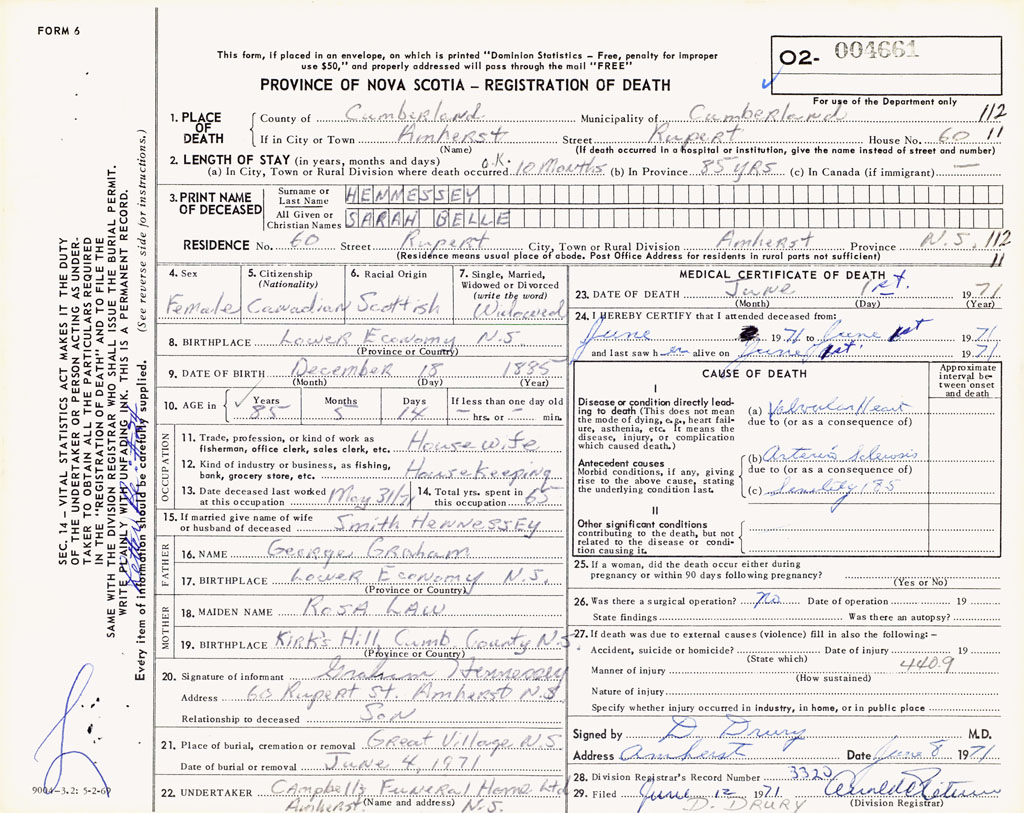 FORM 6
This form, if placed in an envelope, on which is printed "Dominion Statistics – Free, penalty for improper
use $50," and properly addressed will pass through the mail "FREE"
PROVINCE OF NOVA SCOTIA – REGISTRATION OF DEATH
02- 004661
For use of the Department only
1. PLACE OF DEATH
County of Cumberland Municipality of Cumberland 112
If in City or Town Amherst Street Rupert House No. 60 11
(Name) (If death occurred in a hospital or institution, give the name instead of street and number)
2. LENGTH OF STAY (in years, months and days) O.K.
(a) In City, Town or Rural Division where death occurred 10 Months (b) In Province 85 YRS (c) In Canada (if immigrant) —
3. PRINT NAME OF DECEASED
Surname or Last Name HENNESSEY
All Given or Christian Names SARAH BELLE
RESIDENCE No. 60 Street Rupert City, Town or Rural Division Amherst Province N.S. 112
(Residence means usual place of abode. Post Office Address for residents in rural parts not sufficient) 11
4. Sex
Female
5. Citizenship (Nationality)
Canadian
6. Racial Origin
Scottish
7. Single, Married, Widowed or Divorced (write the word)
Widowed
8. BIRTHPLACE Lower Economy N.S.
(Province or Country)
9. DATE OF BIRTH December 18 1885
(Month) (Day) (Year)
10. AGE in Years Months Days If less than one day old
85 5 14 – hrs. or – min.
OCCUPATION
11. Trade, profession, or kind of work as
fisherman, office clerk, sales clerk, etc. Housewife
12. Kind of industry or business, as fishing,
bank, grocery store, etc. Housekeeping
13. Date deceased last worked at this occupation May 31/71
14. Total yrs. spent in this occupation 65
15. If married give name of wife
or husband of deceased Smith Hennessey
FATHER
16. NAME George Graham
17. BIRTHPLACE Lower Economy N.S.
(Province or Country)
MOTHER
18. MAIDEN NAME Rosa Law
19. BIRTHPLACE Kirk's Hill, Cumb. County N.S.
(Province or Country)
20. Signature of informant Graham Hennessey
Address 60 Rupert St. Amherst N.S.
Relationship to deceased Son
21. Place of burial, cremation or removal Great Village N.S.
Date of burial or removal June 4, 1971
22. UNDERTAKER Campbell's Funeral Home Ltd
Amherst (Name and address) N.S.
MEDICAL CERTIFICATE OF DEATH
23. DATE OF DEATH June 1st. 1971
(Month) (Day) (Year)
24. I HEREBY CERTIFY that I attended deceased from:
June 1971 to June 1st 1971
and last saw her alive on June 1st. 1971
CAUSE OF DEATH
Approximate interval between onset and death
I
Disease or condition directly leading
to death (This does not mean
the mode of dying, e.g., heart failure,
asthenia, etc. It means the
disease, injury, or complication
which caused death.)
(a) Valvular Heart
due to (or as a consequence of)
Antecedent causes
Morbid conditions, if any, giving
rise to the above cause, stating
the underlying condition last.
(b) Arterio Sclerosis
due to (or as a consequence of)
(c) Senility 85
II
Other significant conditions
contributing to the death, but not
related to the disease or condition
causing it.
25. If a woman, did the death occur either during
pregnancy or within 90 days following pregnancy?
(Yes or No)
26. Was there a surgical operation? No Date of operation 19
State findings Was there an autopsy?
27. If death was due to external causes (violence) fill in also the following: –
Accident, suicide or homicide? Date of injury 19
(State which) 440.9
Manner of injury
(How sustained)
Nature of injury
Specify whether injury occurred in industry, in home, or in public place
Signed by D. Drury M.D.
Address Amherst Date June 8 1971
28. Division Registrar's Record Number 3320
29. Filed June 12 1971
D. DRURY (Division Registrar)
SEC. 14 – VITAL STATISTICS ACT MAKES IT THE DUTY
OF THE UNDERTAKER OR PERSON ACTING AS UNDERTAKER
TO OBTAIN ALL THE PARTICULARS REQUIRED
IN THE "REGISTRATION OF DEATH" AND TO FILE THE
SAME WITH THE DIVISION REGISTRAR WHO SHALL ISSUE THE BURIAL PERMIT.
WRITE PLAINLY WITH UNFADING INK. THIS IS A PERMANENT RECORD.
Every item of information should be carefully supplied. (See reverse side for instructions.)
9004–3.2: 5-2-69